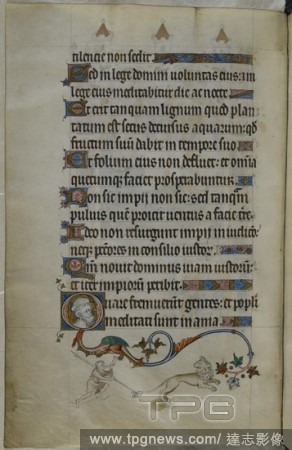 tilencie non sedit
Sed in lege domini voluntas eius: in
lege eius meditabitur die ac nocte
Et erit tanquam lignum quod plan
tatum est secus decursus aquarum: qd
fructum suum dabit in tempore suo
Et folium eius non defluet: et omnia
quecumq; faciet prosperabuntur
Non sic impii non sic: sed tanqm
puluis quem proicit uentus a facie tre
Ideo non resurgunt impii in iudicio
neq; pctores in consilio iustor
Qm nouit dominus uiam iustor
et iter impiorum peribit
Quare fremuerunt gentes: et popli
meditati sunt inania
TPG
www.tpgnews.com / 達志影像